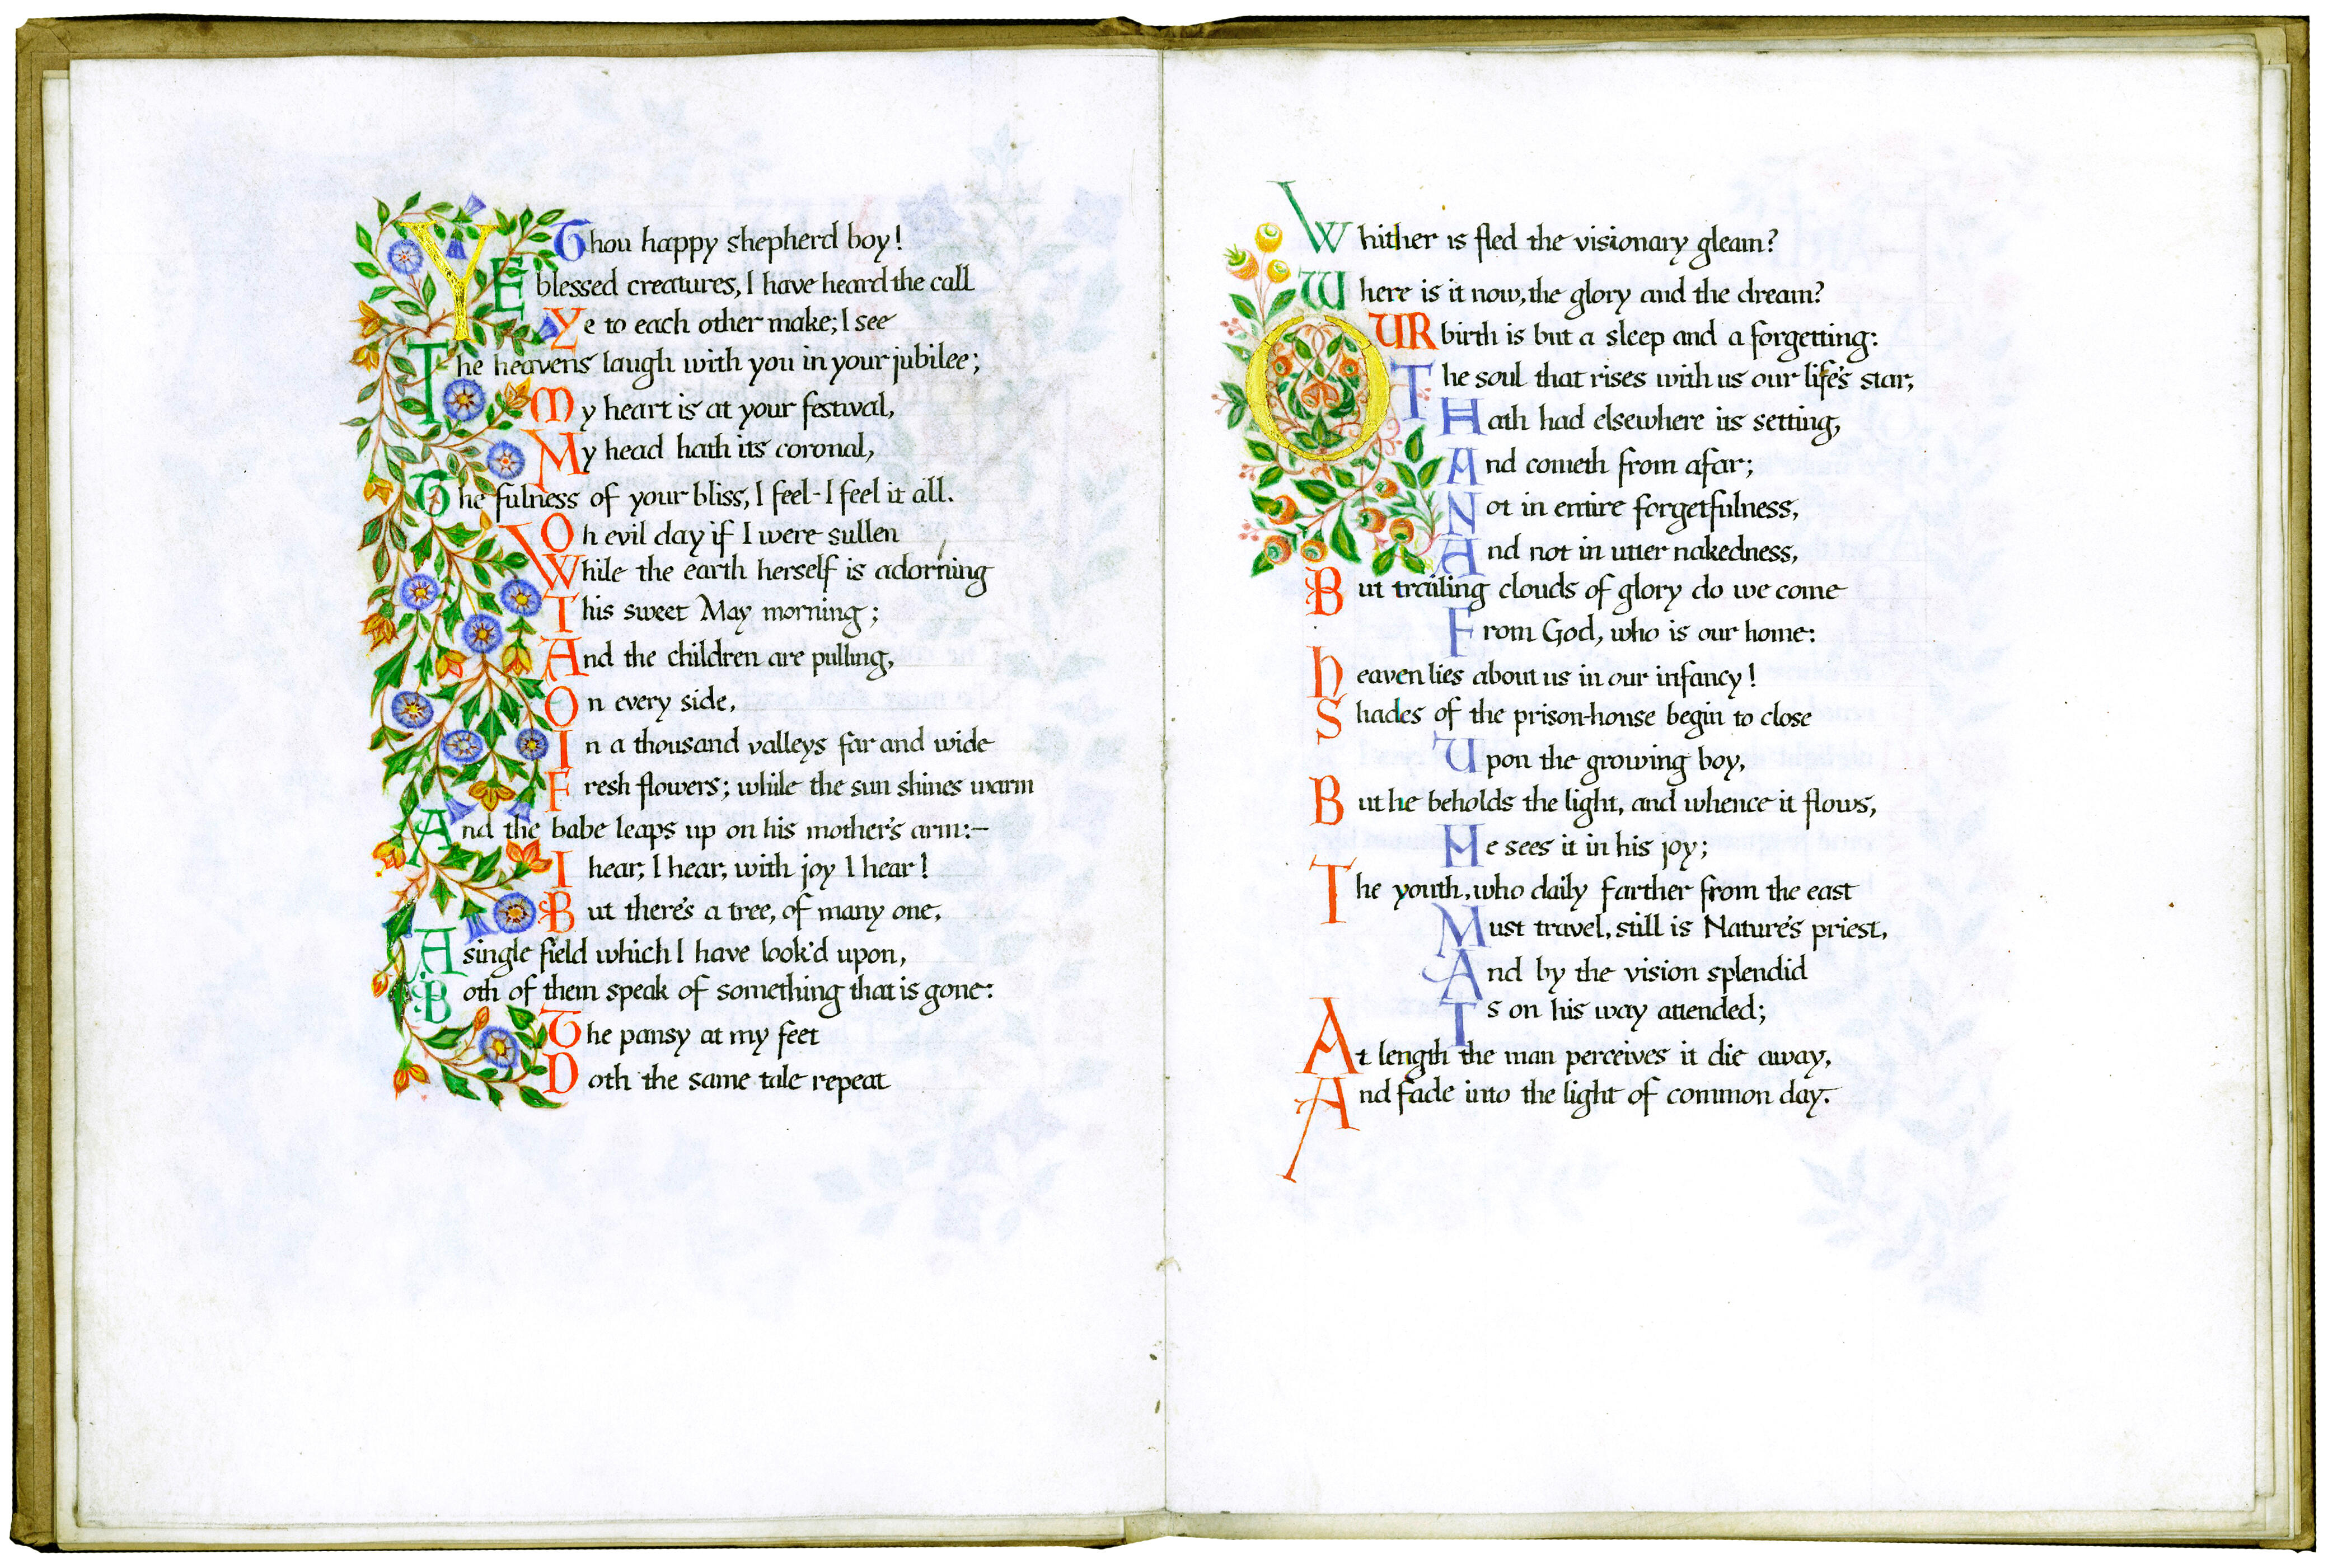 Thou happy shepherd boy!
YE blessed creatures, I have heard the call
Ye to each other make; I see
The heavens laugh with you in your jubilee;
My heart is at your festival,
My head hath its coronal,
The fulness of your bliss, I feel - I feel it all.
Oh evil day if I were sullen
While the earth herself is adorning
This sweet May morning;
And the children are pulling,
On every side,
In a thousand valleys far and wide
Fresh flowers; while the sun shines warm
And the babe leaps up on his mother's arm:-
I hear, I hear, with joy I hear!
But there's a tree, of many one,
A single field which I have look'd upon,
Both of them speak of something that is gone:
The pansy at my feet
Doth the same tale repeat
Whither is fled the visionary gleam?
Where is it now, the glory and the dream?
OUR birth is but a sleep and a forgetting:
The soul that rises with us our life's star,
Hath had elsewhere its setting,
And cometh from afar;
Not in entire forgetfulness,
And not in utter nakedness,
But trailing clouds of glory do we come
From God, who is our home:
Heaven lies about us in our infancy!
Shades of the prison-house begin to close
Upon the growing boy,
But he beholds the light, and whence it flows,
He sees it in his joy;
The youth, who daily farther from the east
Must travel, still is Nature's priest,
And by the vision splendid
Is on his way attended;
At length the man perceives it die away,
And fade into the light of common day.